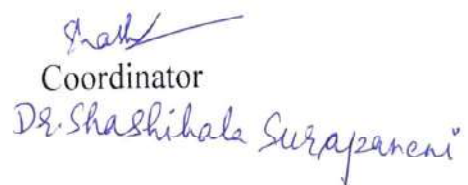 Coordinator
Dr. Shashikala Surapaneni